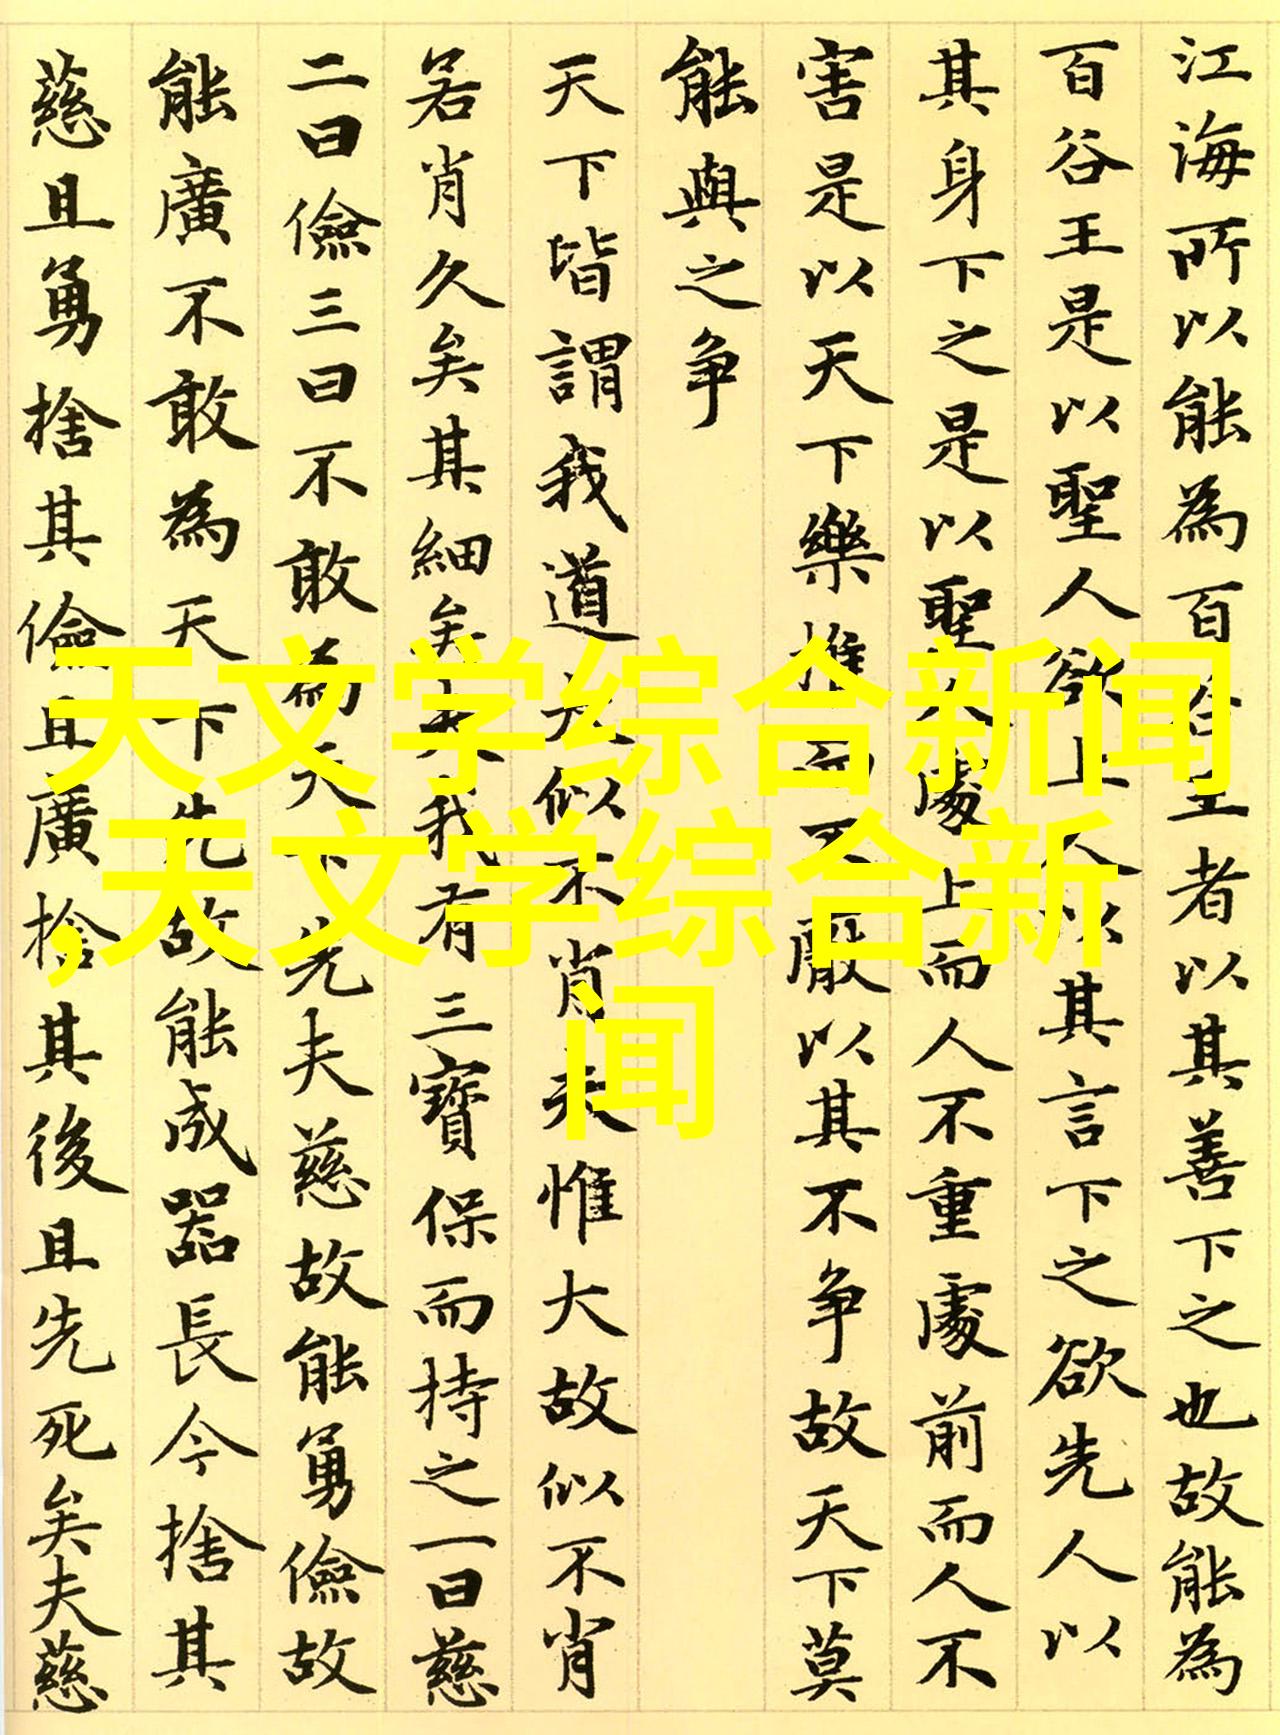 江海所以能為百谷王者以其善下之也故能為
百谷王是以聖人欲上人以其言下之欲先人以
其身下之是以聖人處上而人不重處前而人不
害是以天下樂推而不厭以其不争故天下莫
能與之争
天下皆謂我道大似不肖夫惟大故似不肖
若肖久矣其細矣夫我有三寶保而持之一曰慈
二曰儉三曰不敢為天下先夫慈故能勇儉故
能廣不敢為天下先故能成器長今捨其
慈且勇捨其儉且廣捨其後且先死矣夫慈
天文学综合新闻
,天文学综合新
闻